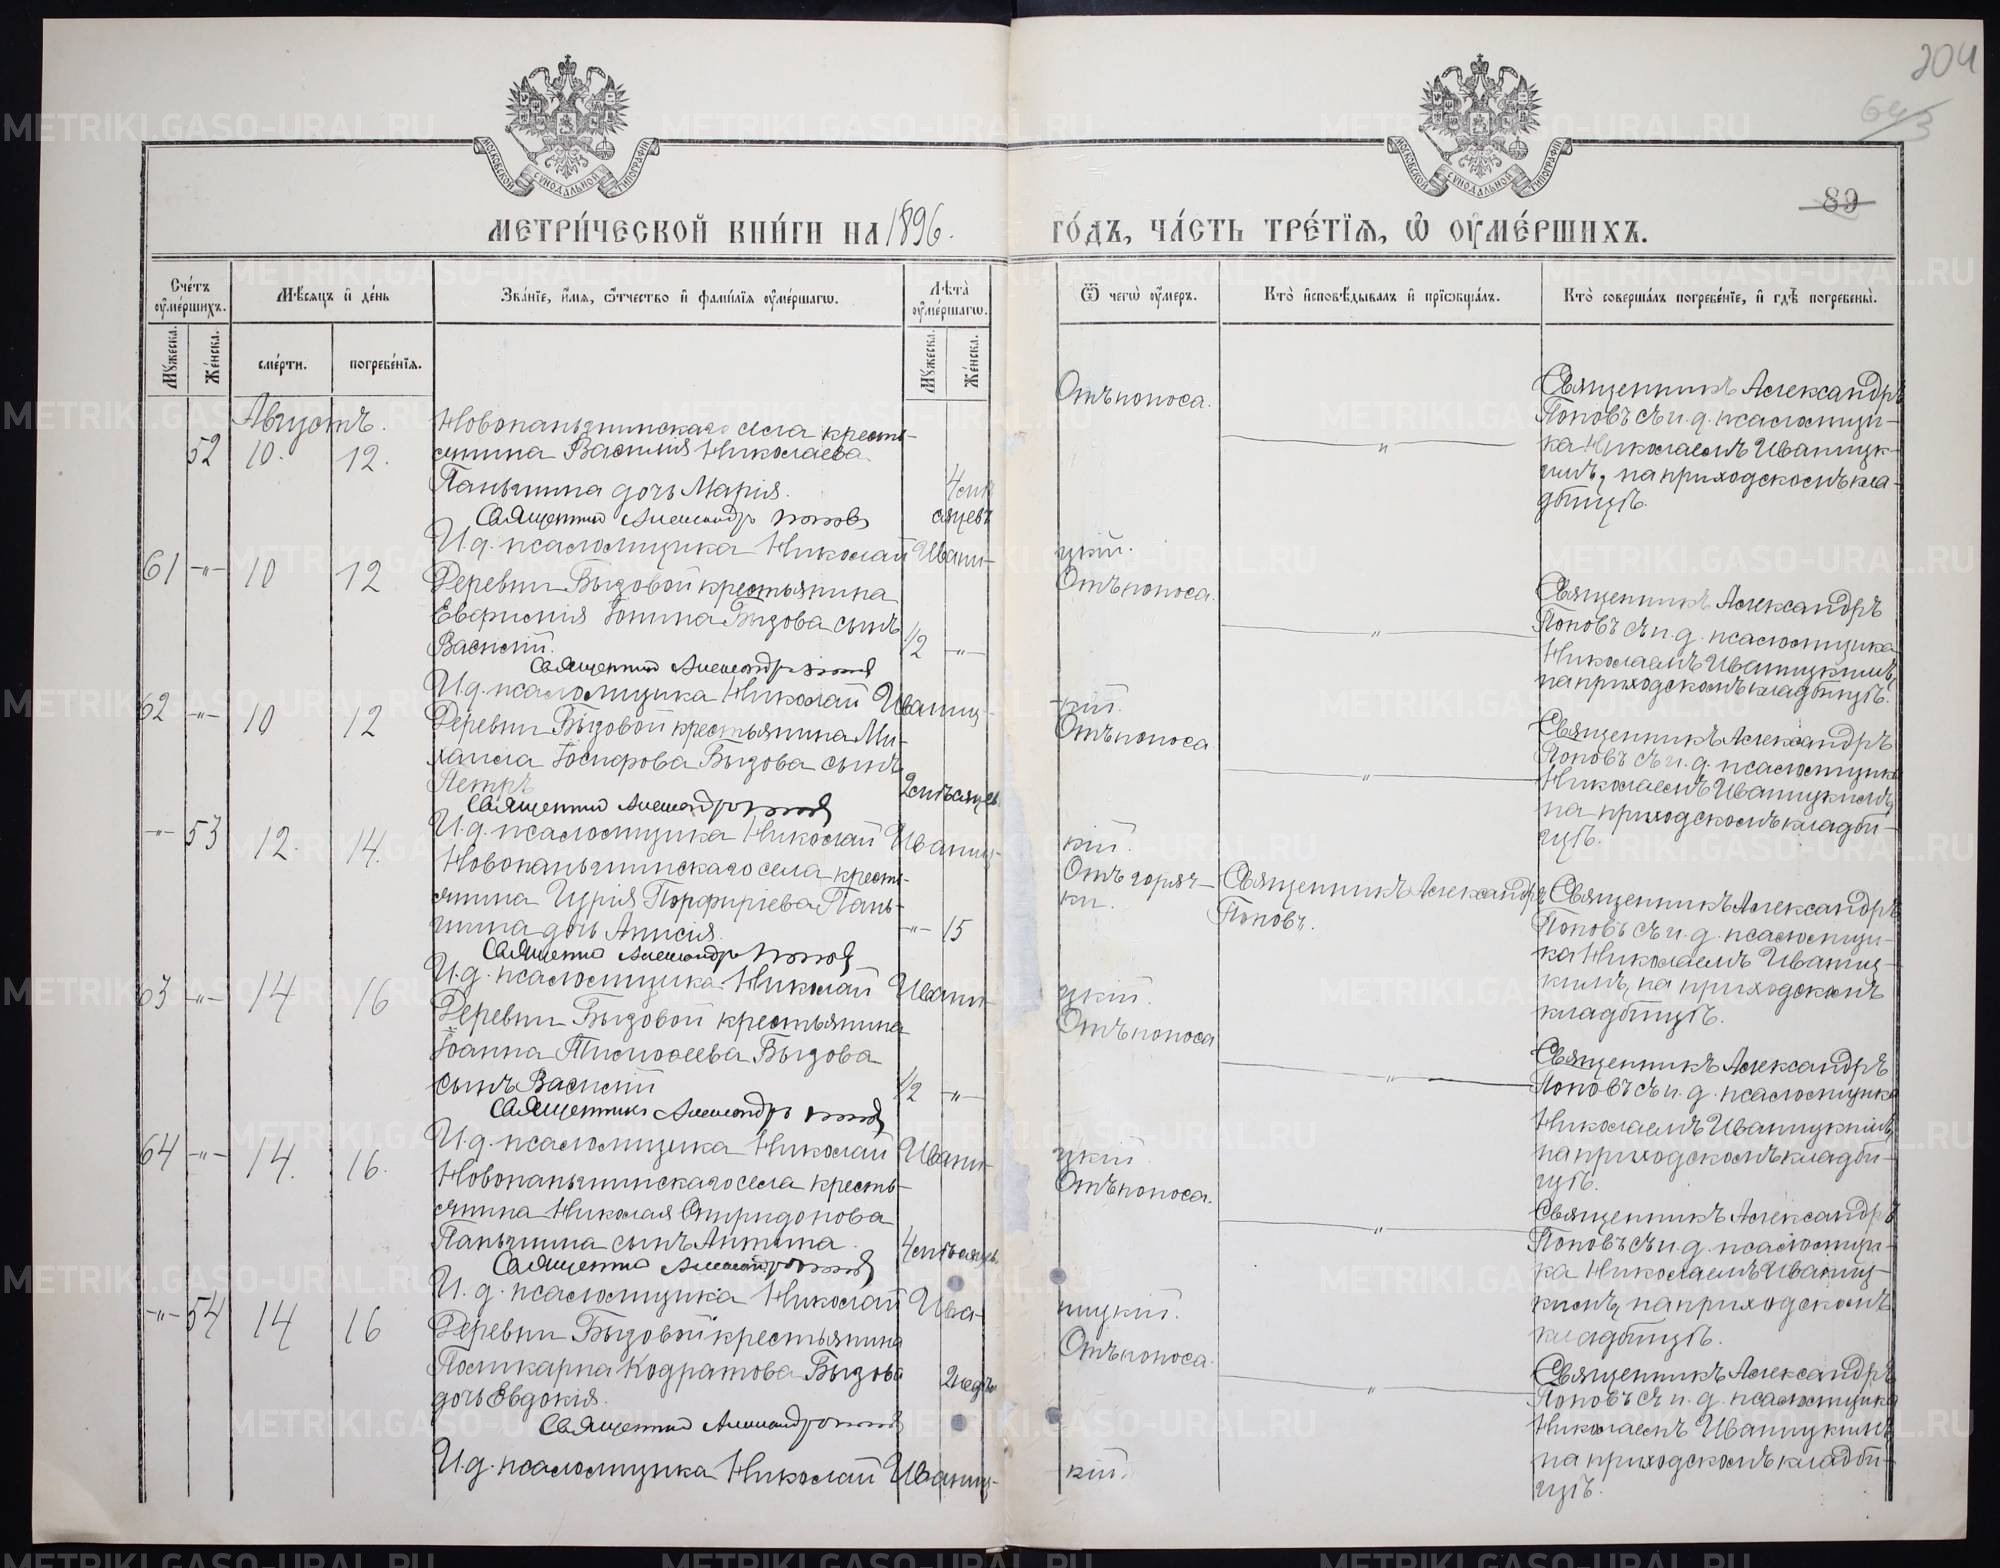 204
64/3
МОСКОВСКОЙ СѴНОДАЛЬНОЙ ТИПОГРАФІИ
МОСКОВСКОЙ СѴНОДАЛЬНОЙ ТИПОГРАФІИ
89
МЕТРИ́ЧЕСКОЙ КНИ́ГИ НА 1896.
ГО́ДЪ, ЧА́СТЬ ТРЕ́ТІѦ, Ѽ ОУ҆МЕ́РШИХЪ.
Сче́тъ оуме́ршихъ.
Мꙋ́жеска.
Же́нска.
Мѣ́сяцъ и де́нь
сме́рти.
погребе́нїѧ.
Зва́нїе, и́мѧ, ѻ҆́тчество и фами́лїѧ оуме́ршагѡ.
Лѣта̀ оуме́ршагѡ.
Мꙋ́жеска.
Же́нска.
Ѿ чегѡ̀ оу́меръ.
Кто̀ и҆сповѣ́дывалъ и҆ прїѡбща́лъ.
Кто̀ соверша́лъ погребе́нїе, и҆ гдѣ̀ погребены̀.
Августъ.
52 10. 12.
Новопаньшинскаго села кресть-
янина Василія Николаева
Паньшина дочь Марія.
4 мѣ
сяцевъ
Священник Александръ Попов
И. д. псаломщика Николай Ивани-
цкій.
Отъ поноса.
"
Священникъ Александръ
Поповъ съ и. д. псаломщи-
ка Николаемъ Иваницк-
имъ, на приходскомъ кла-
дбищѣ.
61 -"- 10 12
Деревни Бызовой крестьянина
Евфимія Іонина Бызова сынъ
Василій.
1/2 -"-
Священник Александр Попов
И. д. псаломщика Николай Иваниц-
кій.
Отъ поноса.
"
Священникъ Александръ
Поповъ съ и. д. псаломщика
Николаемъ Иваницкимъ,
на приходскомъ кладбищѣ.
62 -"- 10 12
Деревни Бызовой крестьянина Ми-
хаила Іосифова Бызова сынъ
Петръ
2 мѣсяцев.
Священник Александр Попов
И. д. псаломщика Николай Иваниц-
кій.
Отъ поноса
"
Священникъ Александръ
Поповъ съ и. д. псаломщика
Николаемъ Иваницкимъ,
на приходскомъ кладби-
щѣ.
-"- 53 12. 14.
Новопаньшинскаго села кресть-
янина Гурія Порфиріева Пань-
шина дочь Анисія.
-"- 15
Священник Александр Попов
И. д. псаломщика Николай Ивани-
цкій.
Отъ горяч-
ки.
Священникъ Александръ
Поповъ.
Священникъ Александръ
Поповъ съ и. д. псаломщи-
ка Николаемъ Иваниц-
кимъ, на приходскомъ
кладбищѣ.
63 -"- 14 16
Деревни Бызовой крестьянина
Іоанна Тимофеева Бызова
сынъ Василій
1/2 -"-
Священник Александръ Попов
И. д. псаломщика Николай Ивани-
цкій.
Отъ поноса
"
Священникъ Александръ
Поповъ съ и. д. псаломщика
Николаемъ Иваницкимъ,
на приходскомъ кладби-
щѣ.
64 -"- 14. 16.
Новопаньшинскаго села кресть-
янина Николая Спиридонова
Паньшина сынъ Антипа.
4 мѣсяцев.
Священник Александр Попов
И. д. псаломщика Николай Ива-
ницкій.
Отъ поноса.
"
Священникъ Александръ
Поповъ съ и. д. псаломщи-
ка Николаемъ Иваниц-
кимъ, на приходскомъ
кладбищѣ.
-"- 54 14 16
Деревни Бызовой крестьянина
Поликарпа Кодратова Бызова
дочь Евдокія.
2 недѣл
Священник Александр Попов
И. д. псаломщика Николай Иваниц-
кій.
Отъ поноса.
"
Священникъ Александръ
Поповъ съ и. д. псаломщика
Николаемъ Иваницкимъ,
на приходскомъ кладби-
щѣ.
METRIKI.GASO-URAL.RU